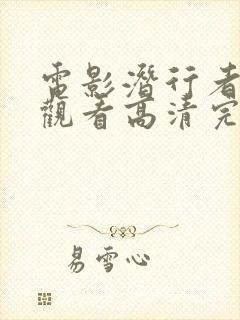 電影潛行者
觀看高清完
易雪心